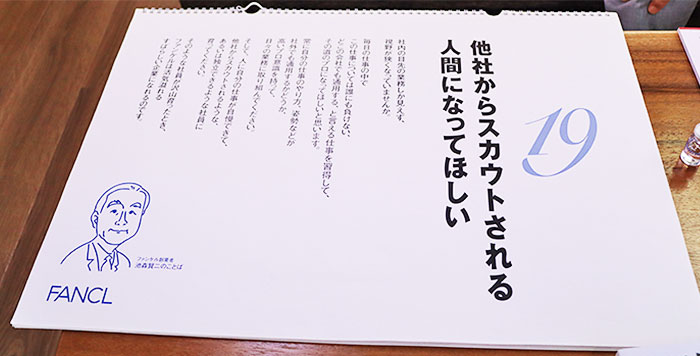 19
他社からスカウトされる
人間になってほしい
社内の目先の業務しか見えず、
視野が狭くなっていませんか。
毎日の仕事の中で
この仕事については誰にも負けない、
どこの会社でも通用する、と言える仕事を習得して、
その道のプロになってほしいと思います。
常に自分の仕事のやり方、姿勢などが
社外でも通用するかどうか、
高いプロ意識を持って、
日々の業務に取り組んでください。
そして、人に自分の仕事が自慢できて、
他社からスカウトされるような、
あるいは独立できるような社員に
育ってください。
そのような社員が沢山育ったとき、
ファンケルは活気溢れる
すばらしい企業になれるのです。
ファンケル創業者
池森賢二のことば
FANCL